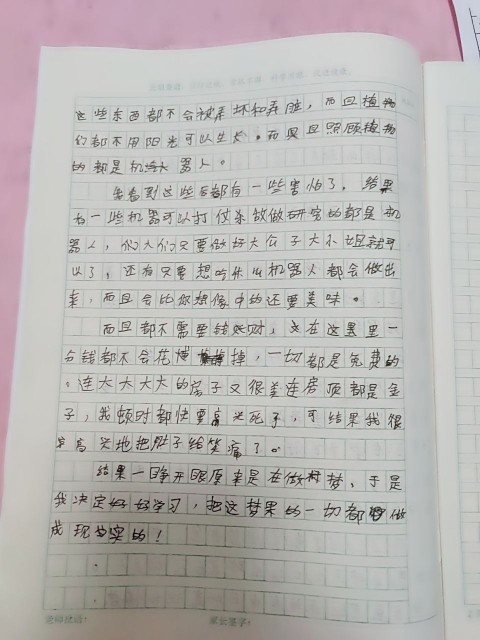 这些东西都不会被弄坏和弄脏，而且植物
们都不用阳光可以生长。而且照顾植物
的都是机器人。
我看到这些后都有一些害怕了，结果
有一些机器可以打仗杀敌做研究的都是机
器人，们人们又要做好大公子大小姐就可
以了，还有只要想吃什么机器人都会做出
来，而且会比你想像中的还要美味。
而且都不需要钱财，在这里一
分钱都不会花掉，一切都是免费的
。连大大大大的房子又很美连房顶都是金
子，我顿时都快要高兴死了，可结果我很
高兴地把肚子给笑痛了。
结果一睁开眼原来是在做梦，于是
我决定好好学习，把这梦里的一切都做
成现实的！
老师批语：
家长签字：